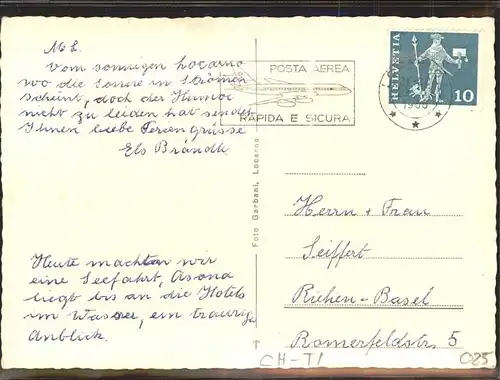 M L.
Vom sonnigen Locarno
wo die Sonne in Strömen
scheint, doch der Humor
nicht zu leiden hat sendet
Ihnen liebe Feriengrüsse
Els Brändli
Heute machten wir
eine Seefahrt, Ascona
liegt bis an die Hotels
im Wasser, ein traurige
Anblick.
Foto Garbani, Locarno
POSTA AEREA
RAPIDA E SICURA
HELVETIA
10
Herrn + Frau
Seiffert
Riehen-Basel
Romerfeldstr. 5
CH-TI
025